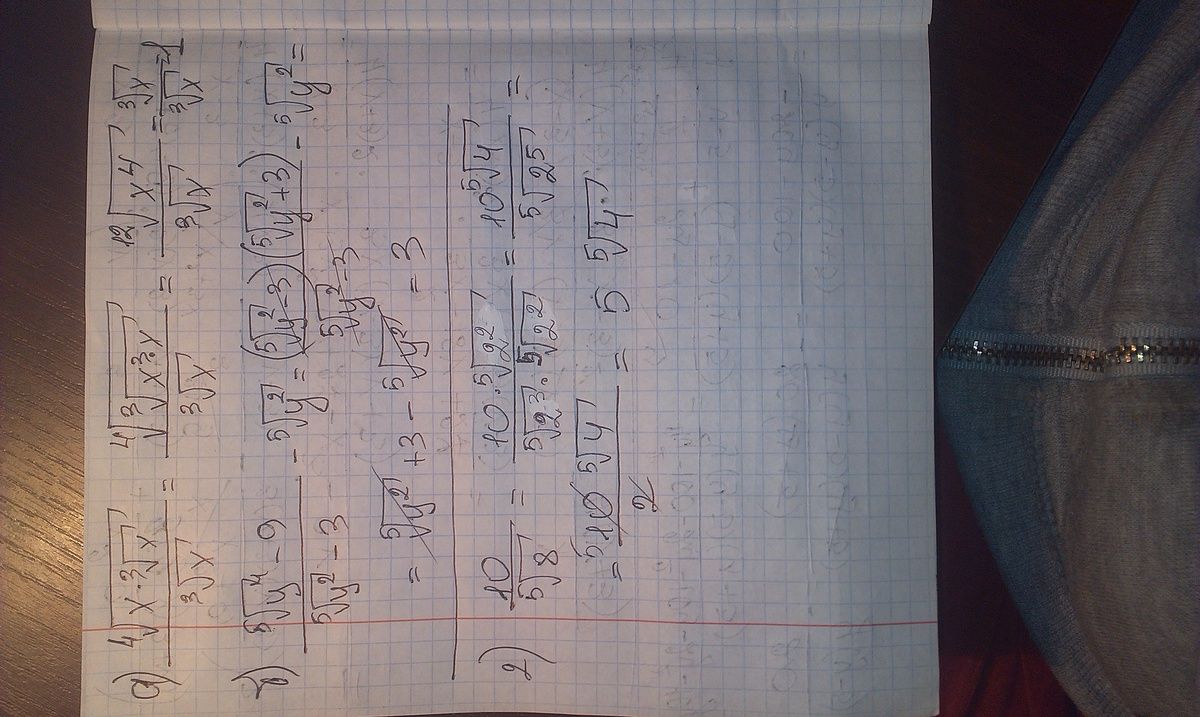 а) ⁴√(x·³√x) / ³√x = ⁴√(³√(x³·x)) / ³√x = ¹²√(x⁴) / ³√x = ³√x / ³√x = 1
б) (⁵√(y⁴) − 9) / (⁵√(y²) − 3) − ⁵√(y²) = (⁵√(y²) − 3)(⁵√(y²) + 3) / (⁵√(y²) − 3) − ⁵√(y²) =
= ⁵√(y²) + 3 − ⁵√(y²) = 3
2) 10 / ⁵√8 = 10·⁵√(2²) / (⁵√(2³)·⁵√(2²)) = 10 ⁵√4 / ⁵√(2⁵) =
= ⁵10 ⁵√4 / 2 = 5 ⁵√4